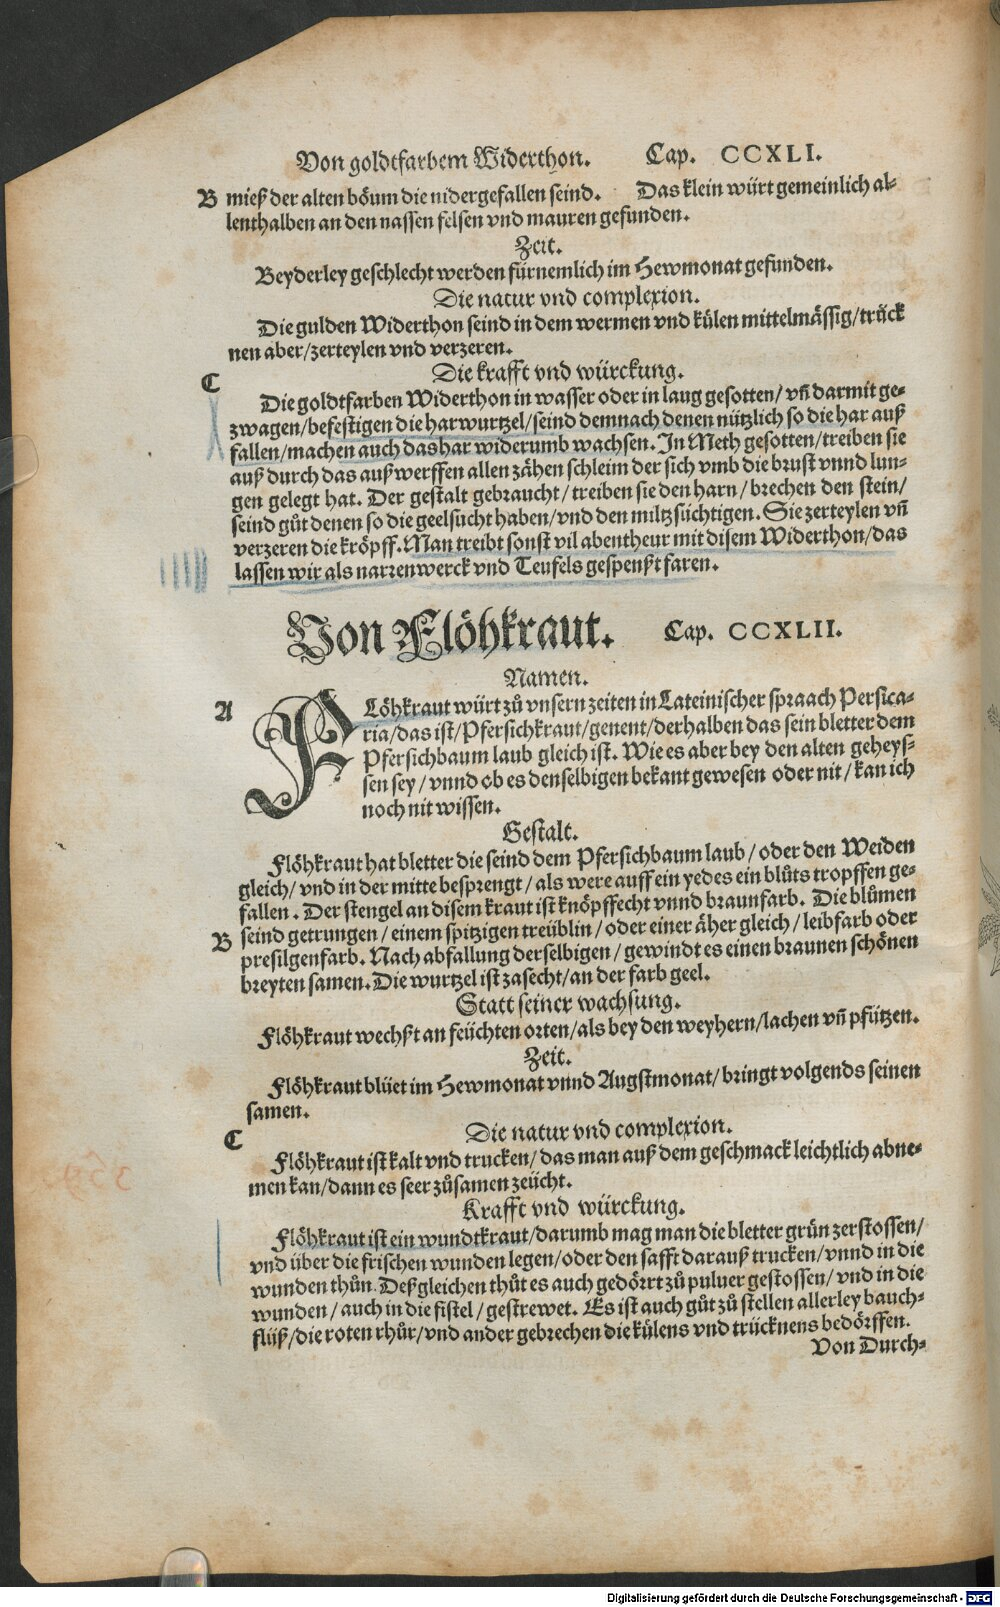 Von goldtfarbem Widerthon. Cap. CCXLI.
B mieß der alten böum die nidergefallen seind. Das klein würt gemeinlich al-
lenthalben an den nassen felsen vnd mauren gefunden.
Zeit.
Beyderley geschlecht werden fürnemlich im Hewmonat gefunden.
Die natur vnd complexion.
Die gulden Widerthon seind in dem wermen vnd külen mittelmässig/trück
nen aber/zerteylen vnd verzeren.
Die krafft vnd würckung.
C
Die goldtfarben Widerthon in wasser oder in laug gesotten/ vn̄ darmit ge-
zwagen/befestigen die harwurtzel/seind demnach denen nützlich so die har auß
fallen/machen auch das har widerumb wachsen. In Meth gesotten/treiben sie
auß durch das außwerffen allen zähen schleim der sich vmb die brust vnnd lun-
gen gelegt hat. Der gestalt gebraucht/treiben sie den harn/brechen den stein/
seind gůt denen so die geelsucht haben/vnd den miltzsüchtigen. Sie zerteylen vn̄
verzeren die kröpff. Man treibt sonst vil abentheur mit disem Widerthon/das
lassen wir als narrenwerck vnd Teufels gespenßt faren.
Von Flöhkraut. Cap. CCXLII.
Namen.
A
FLöhkraut würt zů vnsern zeiten in Lateinischer spraach Persica-
ria/das ist/Pfersichkraut/genent/derhalben das sein bletter dem
Pfersichbaum laub gleich ist. Wie es aber bey den alten geheys-
sen sey/vnnd ob es denselbigen bekant gewesen oder nit/kan ich
noch nit wissen.
Gestalt.
Flöhkraut hat bletter die seind dem Pfersichbaum laub/oder den Weiden
gleich/vnd in der mitte besprengt/als were auff ein yedes ein blůts tropffen ge-
fallen. Der stengel an disem kraut ist knöpffecht vnnd braunfarb. Die blůmen
B seind getrungen/einem spitzigen treüblin/oder einer äher gleich/leibfarb oder
presilgenfarb. Nach abfallung derselbigen/gewindt es einen braunen schönen
breyten samen. Die wurtzel ist zasecht/an der farb geel.
Statt seiner wachsung.
Flöhkraut wechßt an feüchten orten/als bey den weyhern/lachen vn̄ pfützen.
Zeit.
Flöhkraut blüet im Hewmonat vnnd Augstmonat/bringt volgends seinen
samen.
C
Die natur vnd complexion.
Flöhkraut ist kalt vnd trucken/das man auß dem geschmack leichtlich abne-
men kan/dann es seer zůsamen zeücht.
Krafft vnd würckung.
Flöhkraut ist ein wundtkraut/darumb mag man die bletter grün zerstossen/
vnd über die frischen wunden legen/oder den safft darauß trucken/vnnd in die
wunden thůn. Deßgleichen thůt es auch gedörrt zů puluer gestossen/vnd in die
wunden/auch in die fistel/gestrewet. Es ist auch gůt zů stellen allerley bauch-
flüß/die roten rhůr/vnd ander gebrechen die külens vnd trücknens bedörffen.
Von Durch-
359.
Digitalisierung gefördert durch die Deutsche Forschungsgemeinschaft - DFG